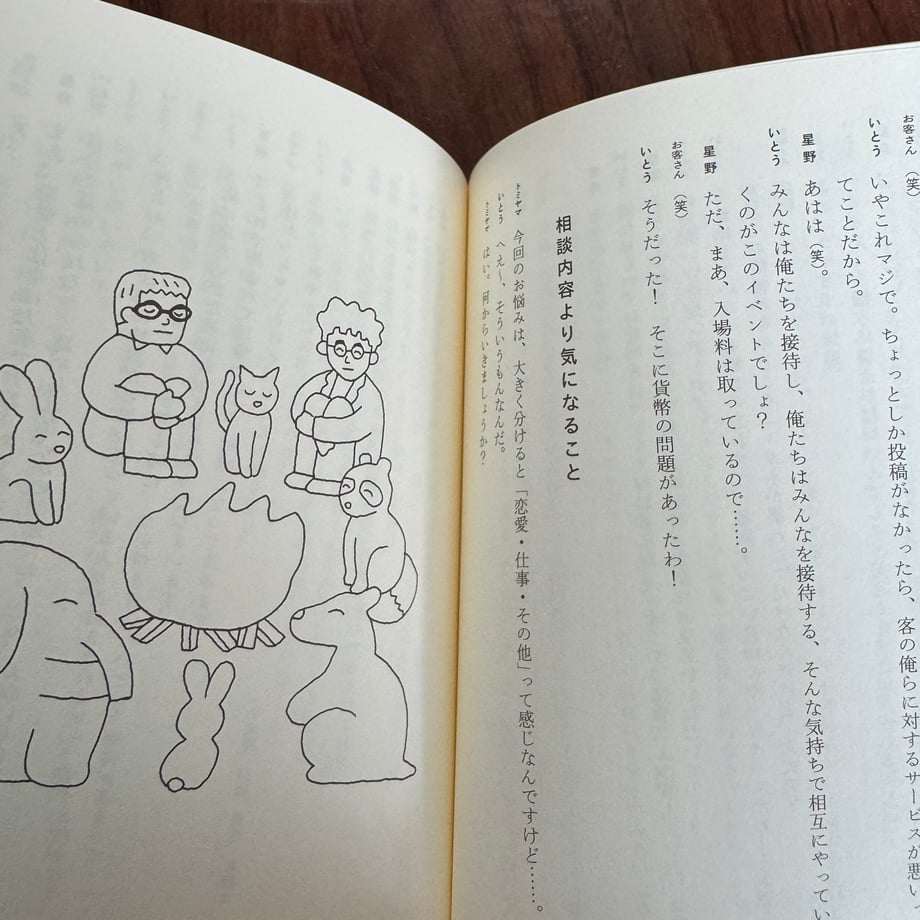 お客さん （笑）
いとう いやこれマジで。ちょっとしか投稿がなかったら、客の俺らに対するサービスが悪い
てことだから。
星野 あはは（笑）。
いとう みんなは俺たちを接待し、俺たちはみんなを接待する、そんな気持ちで相互にやってい
くのがこのイベントでしょ？
星野 ただ、まあ、入場料は取っているので……。
お客さん （笑）
いとう そうだった！ そこに貨幣の問題があったわ！
相談内容より気になること
トミヤマ 今回のお悩みは、大きく分けると「恋愛・仕事・その他」って感じなんですけど……。
いとう へえ〜、そういうもんなんだ。
トミヤマ はい。何からいきましょうか？